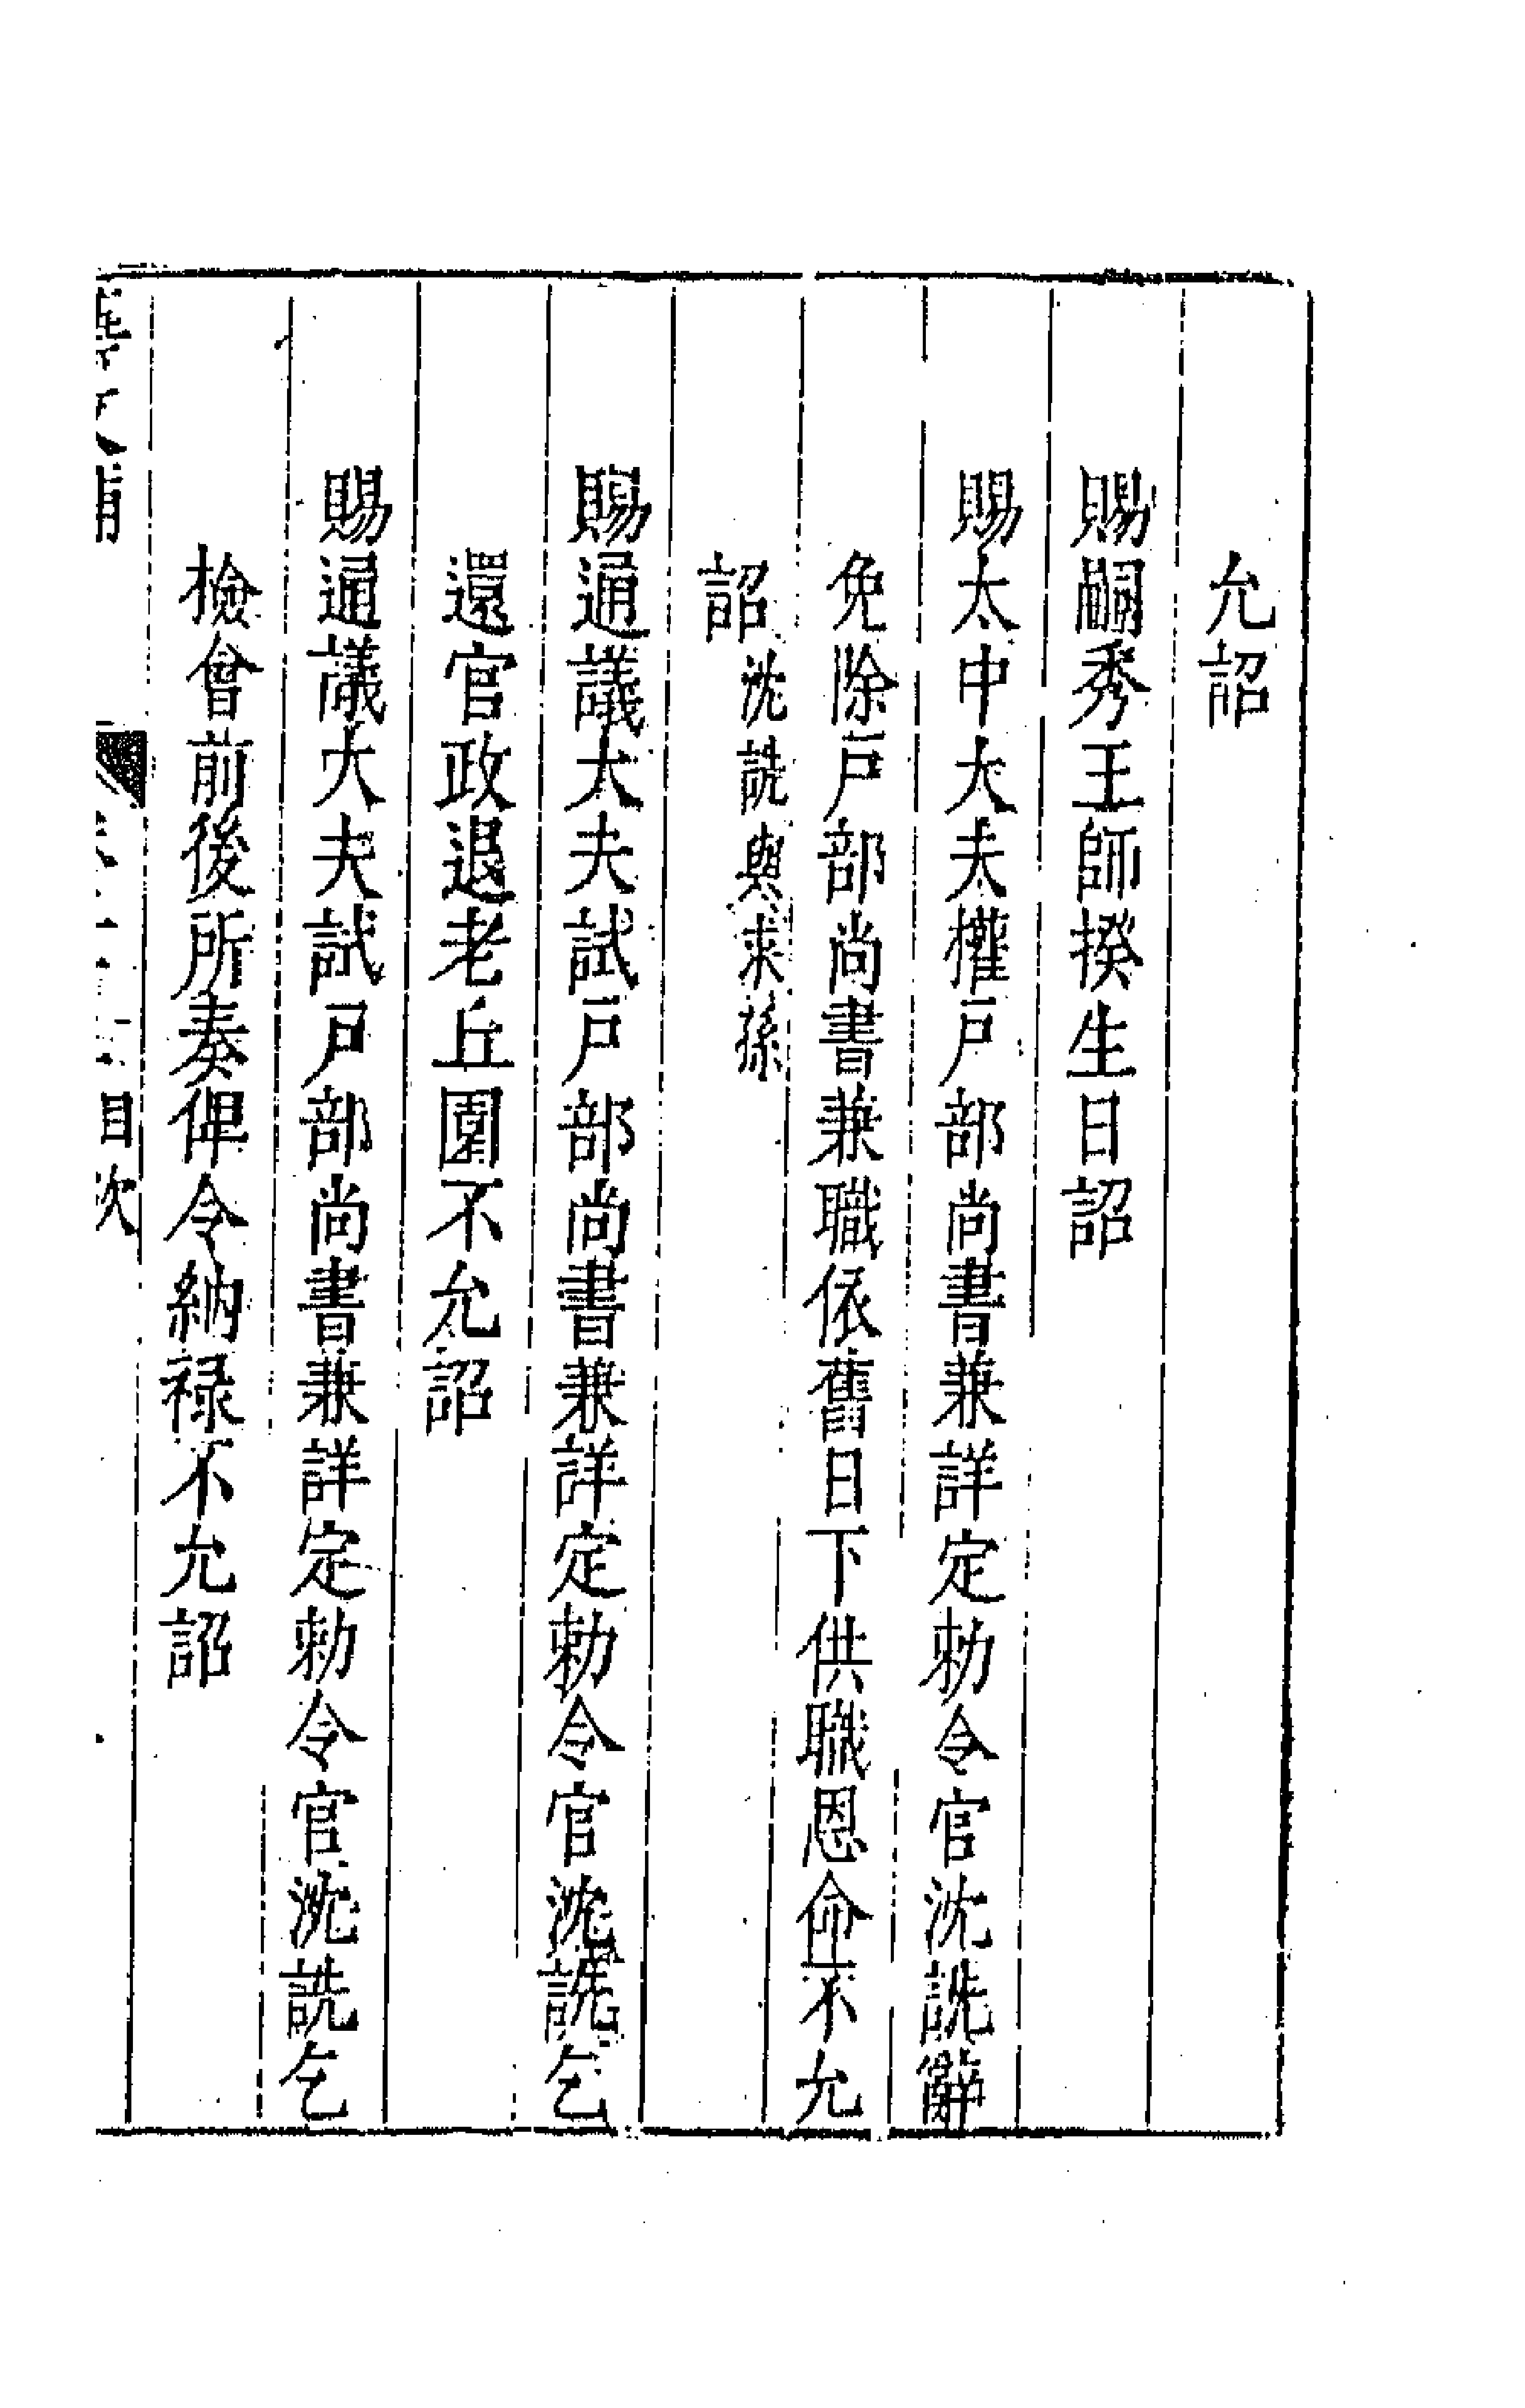 允詔
賜嗣秀王師揆生日詔
賜太中大夫權戶部尚書兼詳定勅令官沈詵辭
免除戶部尚書兼職依舊日下供職恩命不允
詔沈詵與求孫
賜通議大夫試戶部尚書兼詳定勅令官沈詵乞
還官政退老丘園不允詔
賜通議大夫試戶部尚書兼詳定勅令官沈詵乞
檢會前後所奏俾令納祿不允詔
目次